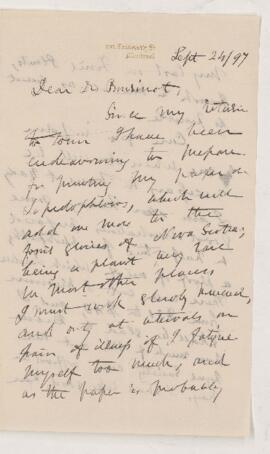 Sept 24/97
Dear Dr Bourinot,
Since my return
to town I have been
endeavouring to prepare
for printing my paper on
Lepidophloios, which will
add one more to the
fossil glories of Nova Scotia,
being a plant very rare
in most other places.
I must work slowly however,
and only at intervals on
pain of illness if I fatigue
myself too much, and
as the paper is probably